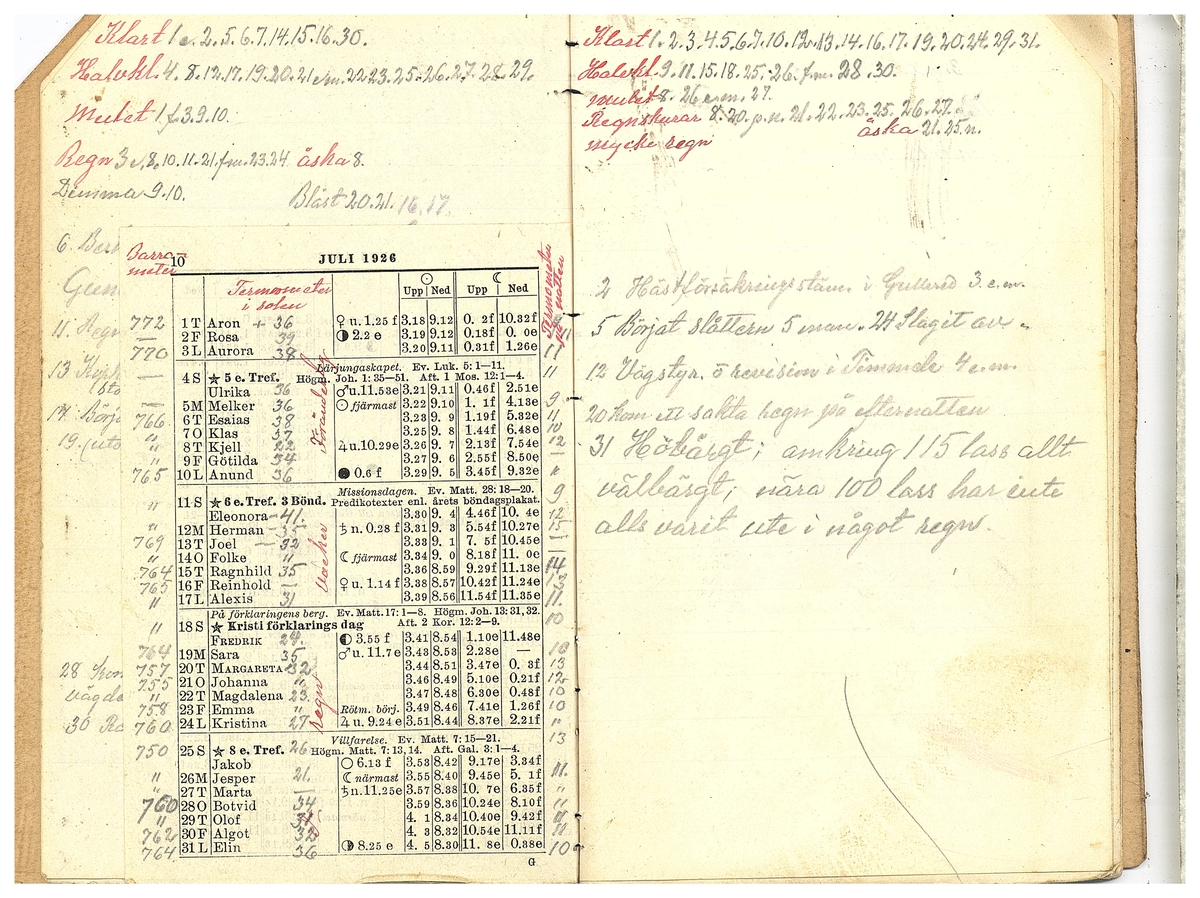 Klart 1 e. 2. 5. 6. 7. 14. 15. 16. 30.
Halvkl. 4. 8. 12. 17. 19. 20. 21 e.m. 22 23. 25. 26. 27. 28. 29.
Mulet 1 f. 3. 9. 10.
Regn 3 e. 8. 10. 11. 21. f.m. 23. 24. åska 8.
Dimma 9. 10. Blåst 20. 21. 16. 17.
6. Ber
Gun
11. Regn
13 Kyrk
sto
14. Börj
19. (uto
28 Kom
vägda
30 Ra
Barro-
meter
10 JULI 1926
Termometer
i solen
Termometer
på natten
☉ ☾
Upp Ned Upp Ned
772 1 T Aron + 36 ♀ u. 1.25 f 3.18 9.12 0. 2f 10.32f
— 2 F Rosa 39 ◑ 2.2 e 3.19 9.12 0.18f 0. 0e 11
770 3 L Aurora 38 3.20 9.11 0.31f 1.26e 11
Lärjungaskapet. Ev. Luk. 5: 1—11.
— 4 S ★ 5 e. Tref. Högm. Joh. 1: 35—51. Aft. 1 Mos. 12: 1—4. 11
Ulrika 36 ♂ u. 11.53e 3.21 9.11 0.46f 2.51e
— 5 M Melker 36 ☉ fjärmast 3.22 9.10 1. 1f 4.13e 9
766 6 T Esaias 38 3.23 9. 9 1.19f 5.32e 11
" 7 O Klas 37 3.25 9. 8 1.44f 6.48e 10
" 8 T Kjell 22 ♃ u. 10.29e 3.26 9. 7 2.13f 7.54e 12
" 9 F Götilda 34 3.27 9. 6 2.55f 8.50e —
765 10 L Anund 36 ● 0.6 f 3.29 9. 5 3.45f 9.32e "
Föränderlig
Missionsdagen. Ev. Matt. 28: 18—20.
" 11 S ★ 6 e. Tref. 3 Bönd. Predikotexter enl. årets böndagsplakat. 9
Eleonora 41 3.30 9. 4 4.46f 10. 4e 12
" 12 M Herman 35 ♄ n. 0.28 f 3.31 9. 3 5.54f 10.27e 15
769 13 T Joel — 32 3.33 9. 1 7. 5f 10.45e
" 14 O Folke " ☾ fjärmast 3.34 9. 0 8.18f 11. 0e —
764 15 T Ragnhild 35 3.36 8.59 9.29f 11.13e 14
765 16 F Reinhold — ♀ u. 1.14 f 3.38 8.57 10.42f 11.24e 13
" 17 L Alexis 31 3.39 8.56 11.54f 11.35e 11.
vacker
På förklaringens berg. Ev. Matt. 17: 1—8. Högm. Joh. 13: 31, 32.
" 18 S ★ Kristi förklarings dag Aft. 2 Kor. 12: 2—9. 10
Fredrik 24. ◐ 3.55 f 3.41 8.54 1.10e 11.48e
764 19 M Sara 35 ♂ u. 11.7 e 3.43 8.53 2.28e — 10
757 20 T Margareta 32 3.44 8.51 3.47e 0. 3f 13
755 21 O Johanna " 3.46 8.49 5.10e 0.21f 12
" 22 T Magdalena 23 3.47 8.48 6.30e 0.48f 10
758 23 F Emma " Rötm. börj. 3.49 8.46 7.41e 1.26f 10
760 24 L Kristina 27 ♃ u. 9.24 e 3.51 8.44 8.37e 2.21f "
regn
Villfarelse. Ev. Matt. 7: 15—21.
750 25 S ★ 8 e. Tref. 26 Högm. Matt. 7: 13, 14. Aft. Gal. 3: 1—4. 13
Jakob ○ 6.13 f 3.53 8.42 9.17e 3.34f
" 26 M Jesper 21. ☾ närmast 3.55 8.40 9.45e 5. 1f 11.
" 27 T Marta — ♄ n. 11.25e 3.57 8.38 10. 7e 6.35f "
760 28 O Botvid 34 3.59 8.36 10.24e 8.10f "
" 29 T Olof 31 4. 1 8.34 10.40e 9.42f 11
762 30 F Algot 32 4. 3 8.32 10.54e 11.11f 11
764 31 L Elin 36 ◑ 8.25 e 4. 5 8.30 11. 8e 0.38e 10
G
Klart 1. 2. 3. 4. 5. 6. 7. 10. 12. 13. 14. 16. 17. 19. 20. 24. 29. 31.
Halvkl. 9. 11. 15. 18. 25. 26. f.m. 28. 30.
mulet 8. 26 e.m. 27.
Regnskurar 8. 20. p.n. 21. 22. 23. 25. 26. 27.
mycke regn åska 21. 25. n.
2 Hästförsäkringsstäm. i Gullered 3. e.m.
5 Börjat slåttern 5 man. 24 Slaget av.
12 Vägstyr. ö revision i Timmele 4 e.m.
20 kom ett sakta regn på efternatten
31 Höbärgt; omkring 115 lass allt
välbärgt; nära 100 lass har inte
alls varit ute i något regn.